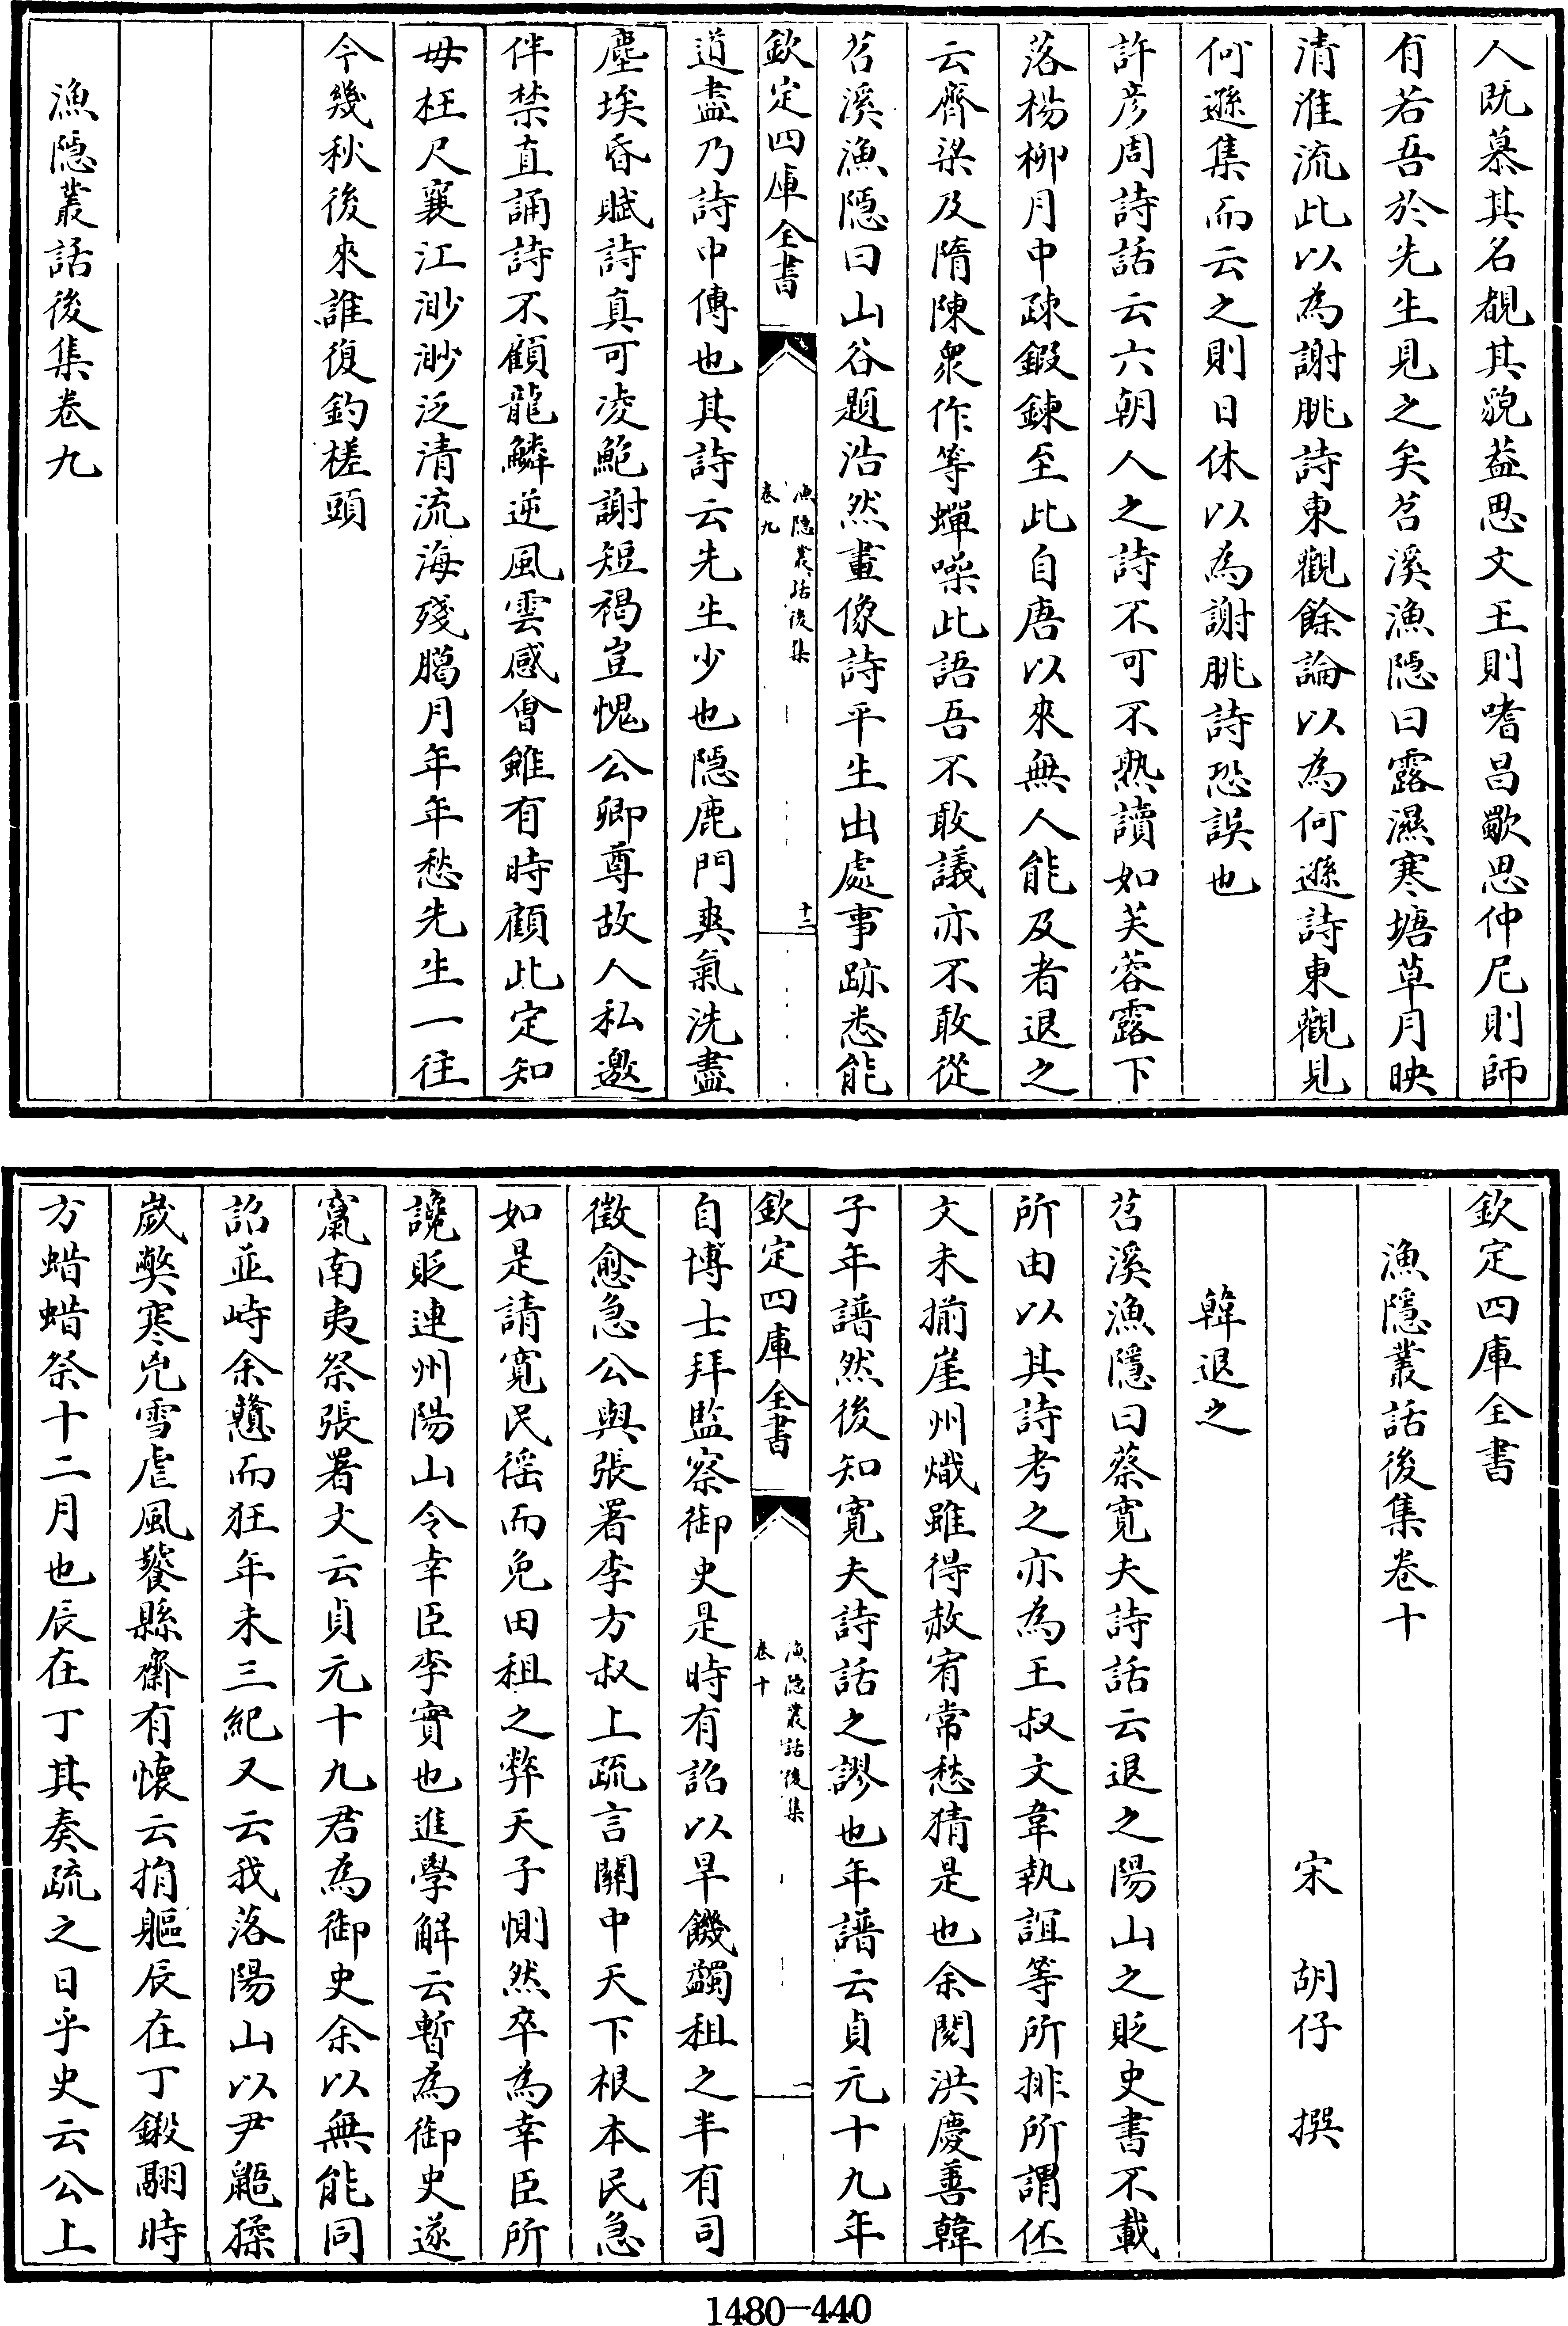 人既慕其名覩其貌葢思文王則嗜昌歜思仲尼則師
有若吾於先生見之矣苕溪漁隱曰露濕寒塘草月映
清淮流此以為謝朓詩東觀餘論以為何遜詩東觀見
何遜集而云之則日休以為謝朓詩恐誤也
許彦周詩話云六朝人之詩不可不熟讀如芙蓉露下
落楊柳月中疎鍛鍊至此自唐以來無人能及者退之
云齊梁及隋陳衆作等蟬噪此語吾不敢議亦不敢從
苕溪漁隱曰山谷題浩然畫像詩平生出處事跡悉能
欽定四庫全書
漁隱叢話後集
卷九
十二
道盡乃詩中傳也其詩云先生少也隱鹿門爽氣洗盡
塵埃昏賦詩真可凌鮑謝短褐豈愧公卿尊故人私邀
伴禁直誦詩不顧龍鱗逆風雲感會雖有時顧此定知
毋枉尺襄江渺渺泛清流海殘臈月年年愁先生一往
今幾秋後來誰復釣槎頭
漁隱叢話後集卷九
欽定四庫全書
漁隱叢話後集卷十
宋 胡仔 撰
韓退之
苕溪漁隱曰蔡寬夫詩話云退之陽山之貶史書不載
所由以其詩考之亦為王叔文韋執誼等所排所謂伾
文未揃崖州熾雖得赦宥常愁猜是也余閱洪慶善韓
子年譜然後知寬夫詩話之謬也年譜云貞元十九年
欽定四庫全書
漁隱叢話後集
卷十
一
自博士拜監察御史是時有詔以旱饑蠲租之半有司
徵愈急公與張署李方叔上疏言關中天下根本民急
如是請寬民徭而免田租之弊天子惻然卒為幸臣所
讒貶連州陽山令幸臣李實也進學解云暫為御史遂
竄南夷祭張署文云貞元十九君為御史余以無能同
詔並峙余戇而狂年未三紀又云我落陽山以尹鼯猱
歲獘寒兇雪虐風饕縣齋有懷云捐軀辰在丁鎩翮時
方蜡蜡祭十二月也辰在丁其奏疏之日乎史云公上
1480-440